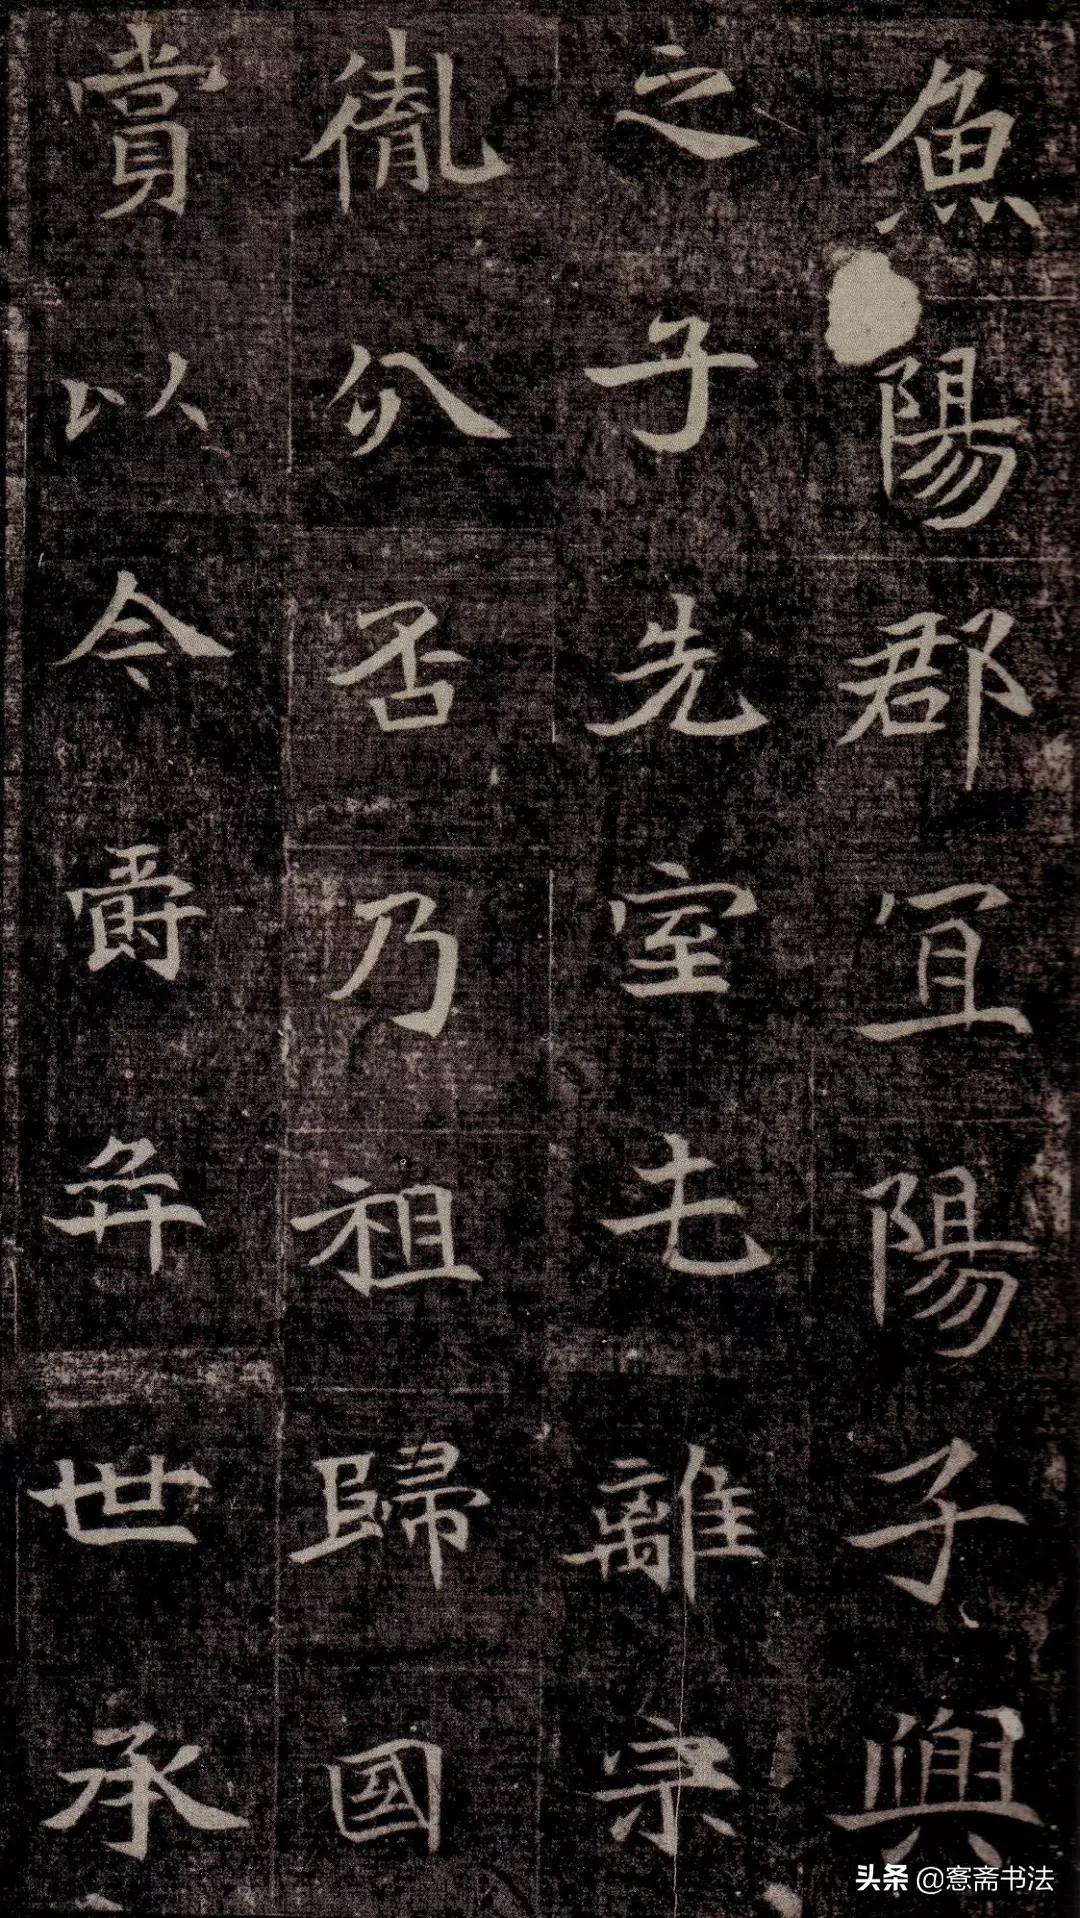 魚陽郡宜陽子興
之子先室屯離宗
胤分否乃祖歸國
賞以今爵弈世承
头条 @愙斋书法